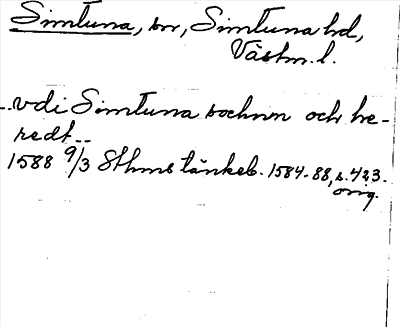 Simtuna, sn, Simtuna hd,
Västm. l.
..vdi Simtuna sochnn och he-
redt..
1588 9/3 Sthms tänkeb. 1584-88, s. 423.
orig.